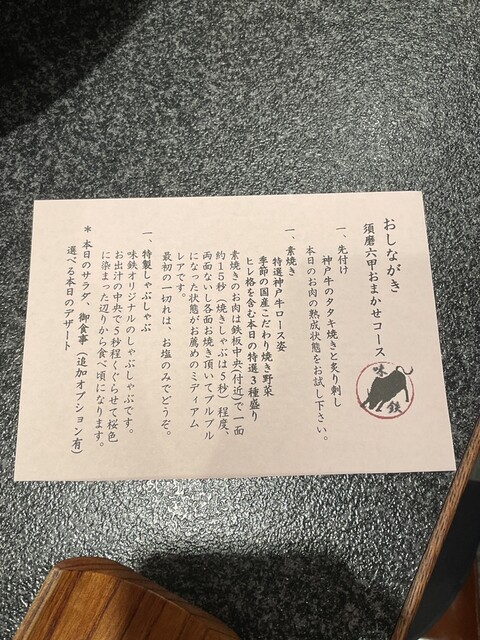 おしながき
須磨六甲おまかせコース
味
鉄
一、先付け
神戸牛のタタキ焼きと炙り刺し
本日のお肉の熟成状態をお試し下さい。
一、素焼き
特選神戸牛ロース姿
季節の国産こだわり焼き野菜
ヒレ格を含む本日の特選3種盛り
素焼きのお肉は鉄板中央(付近)で一面
約15秒(焼きしゃぶは5秒)程度、
両面ないし各面お焼き頂いてプルプル
になった状態がお薦めのミディアム
レアです。
最初の一切れは、お塩のみでどうぞ。
一、特製しゃぶしゃぶ
味鉄オリジナルのしゃぶしゃぶです。
お出汁の中央で5秒程くぐらせて桜色
に染まった辺りから食べ頃になります。
*本日のサラダ、御食事(追加オプション有)
選べる本日のデザート